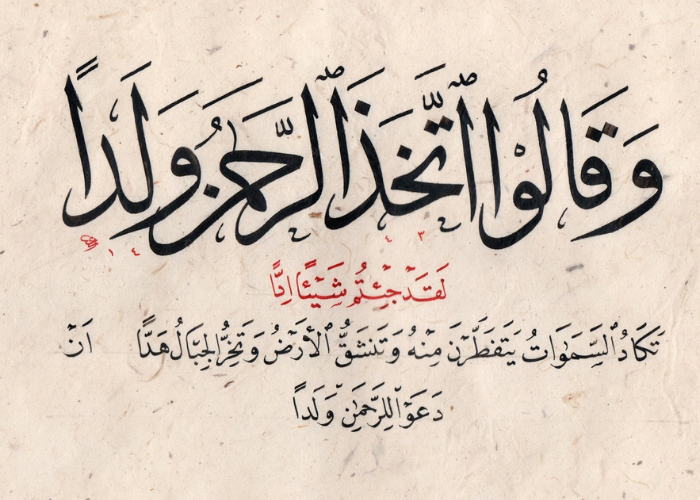 وَقَالُوا ٱتَّخَذَ ٱلرَّحْمَنُ وَلَدًا
١٤٤٣
لَقَدْ جِئْتُمْ شَيْئًا اِدًّا
تَكَادُ ٱلسَّمَوَاتُ يَتَفَطَّرْنَ مِنْهُ وَتَنْشَقُّ ٱلْأَرْضُ وَتَخِرُّ ٱلْجِبَالُ هَدًّا اَنْ
دَعَوْا لِلرَّحْمَنِ وَلَدًا